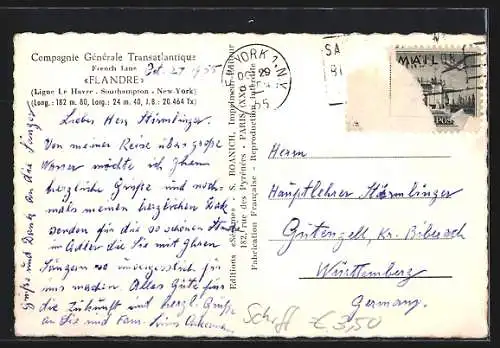 Compagnie Générale Transatlantique
French Line
«FLANDRE»
(Ligne Le Havre - Southampton - New-York)
(Long.: 182 m. 80, Larg.: 24 m. 40, J.B.: 20.464 Tx)
Oct. 27 1955
Lieber Herr Stürmlinger.
Von meiner Reise über große
Wasser möchte ich Ihnen
herzliche Grüße und noch-
mals meinen herzlichen Dank
senden für die so schönen Stunden
im Adler die Sie mit Ihren
Sängern so unvergesslich für
uns machten. Alles Gute für
die Zukunft und herzl. Grüße
an Sie und Fam.
Grüße und Dank an die Sänger
Editions
S. BOANICH, Imprimeur-Editeur
182, rue des Pyrénées - PARIS (XX)
Fabrication Française - Reproduction interdite
YORK 1, N.Y.
MAIL
POST
Herrn
Hauptlehrer Stürmlinger
Gutenzell, Kr. Biberach
Württemberg
Germany.
Schiff € 3,50